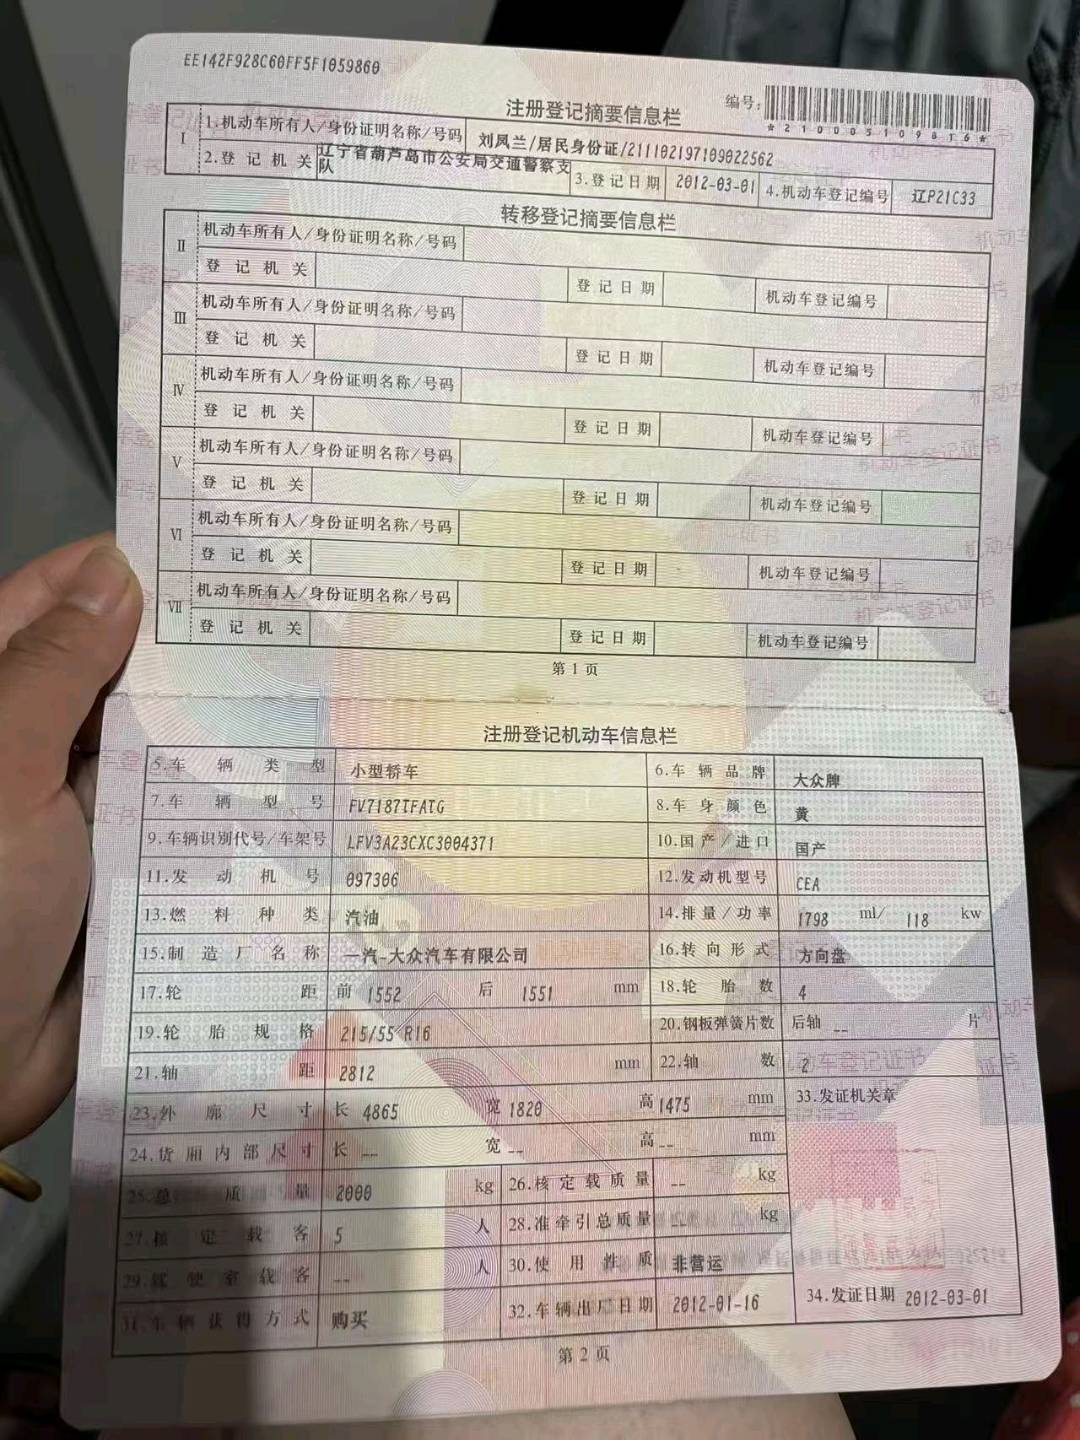 EE142F928C60FF5F1059860
注册登记摘要信息栏
编号:
*210005109816*
I
1.机动车所有人/身份证明名称/号码 刘凤兰/居民身份证/211102197109022562
2.登记机关 辽宁省葫芦岛市公安局交通警察支队 3.登记日期 2012-03-01 4.机动车登记编号 辽P21C33
转移登记摘要信息栏
II 机动车所有人/身份证明名称/号码
登记机关 登记日期 机动车登记编号
III 机动车所有人/身份证明名称/号码
登记机关 登记日期 机动车登记编号
IV 机动车所有人/身份证明名称/号码
登记机关 登记日期 机动车登记编号
V 机动车所有人/身份证明名称/号码
登记机关 登记日期 机动车登记编号
VI 机动车所有人/身份证明名称/号码
登记机关 登记日期 机动车登记编号
VII 机动车所有人/身份证明名称/号码
登记机关 登记日期 机动车登记编号
第1页
注册登记机动车信息栏
5.车辆类型 小型轿车 6.车辆品牌 大众牌
7.车辆型号 FV7187TFATG 8.车身颜色 黄
9.车辆识别代号/车架号 LFV3A23CXC3004371 10.国产/进口 国产
11.发动机号 097306 12.发动机型号 CEA
13.燃料种类 汽油 14.排量/功率 1798 ml/ 118 kw
15.制造厂名称 一汽-大众汽车有限公司 16.转向形式 方向盘
17.轮距 前 1552 后 1551 mm 18.轮胎数 4
19.轮胎规格 215/55 R16 20.钢板弹簧片数 后轴 -- 片
21.轴距 2812 mm 22.轴数 2
23.外廓尺寸 长 4865 宽 1820 高 1475 mm 33.发证机关章
24.货厢内部尺寸 长 -- 宽 -- 高 -- mm
25.总质量 2000 kg 26.核定载质量 -- kg
27.核定载客 5 人 28.准牵引总质量 -- kg
29.驾驶室载客 -- 人 30.使用性质 非营运
31.车辆获得方式 购买 32.车辆出厂日期 2012-01-16 34.发证日期 2012-03-01
第2页